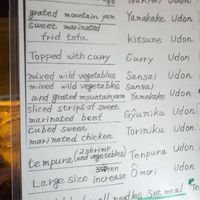 grated mountain yam Yamakake Udon
sweet marinated
fried tofu kitsune Udon
Topped with curry Curry Udon
mixed wild vegetables Sansai Udon
mixed wild vegetables Sansai
and grated mountain yam Yamakake Udon
sliced strips of sweet
marinated beef Gyūniku Udon
cubed sweet
marinated chicken Toriniku Udon
tempura (2 shrimp and vegetables) Tempura Udon
350yen
Large size increase Ōmori Udon
all noodles Set meal